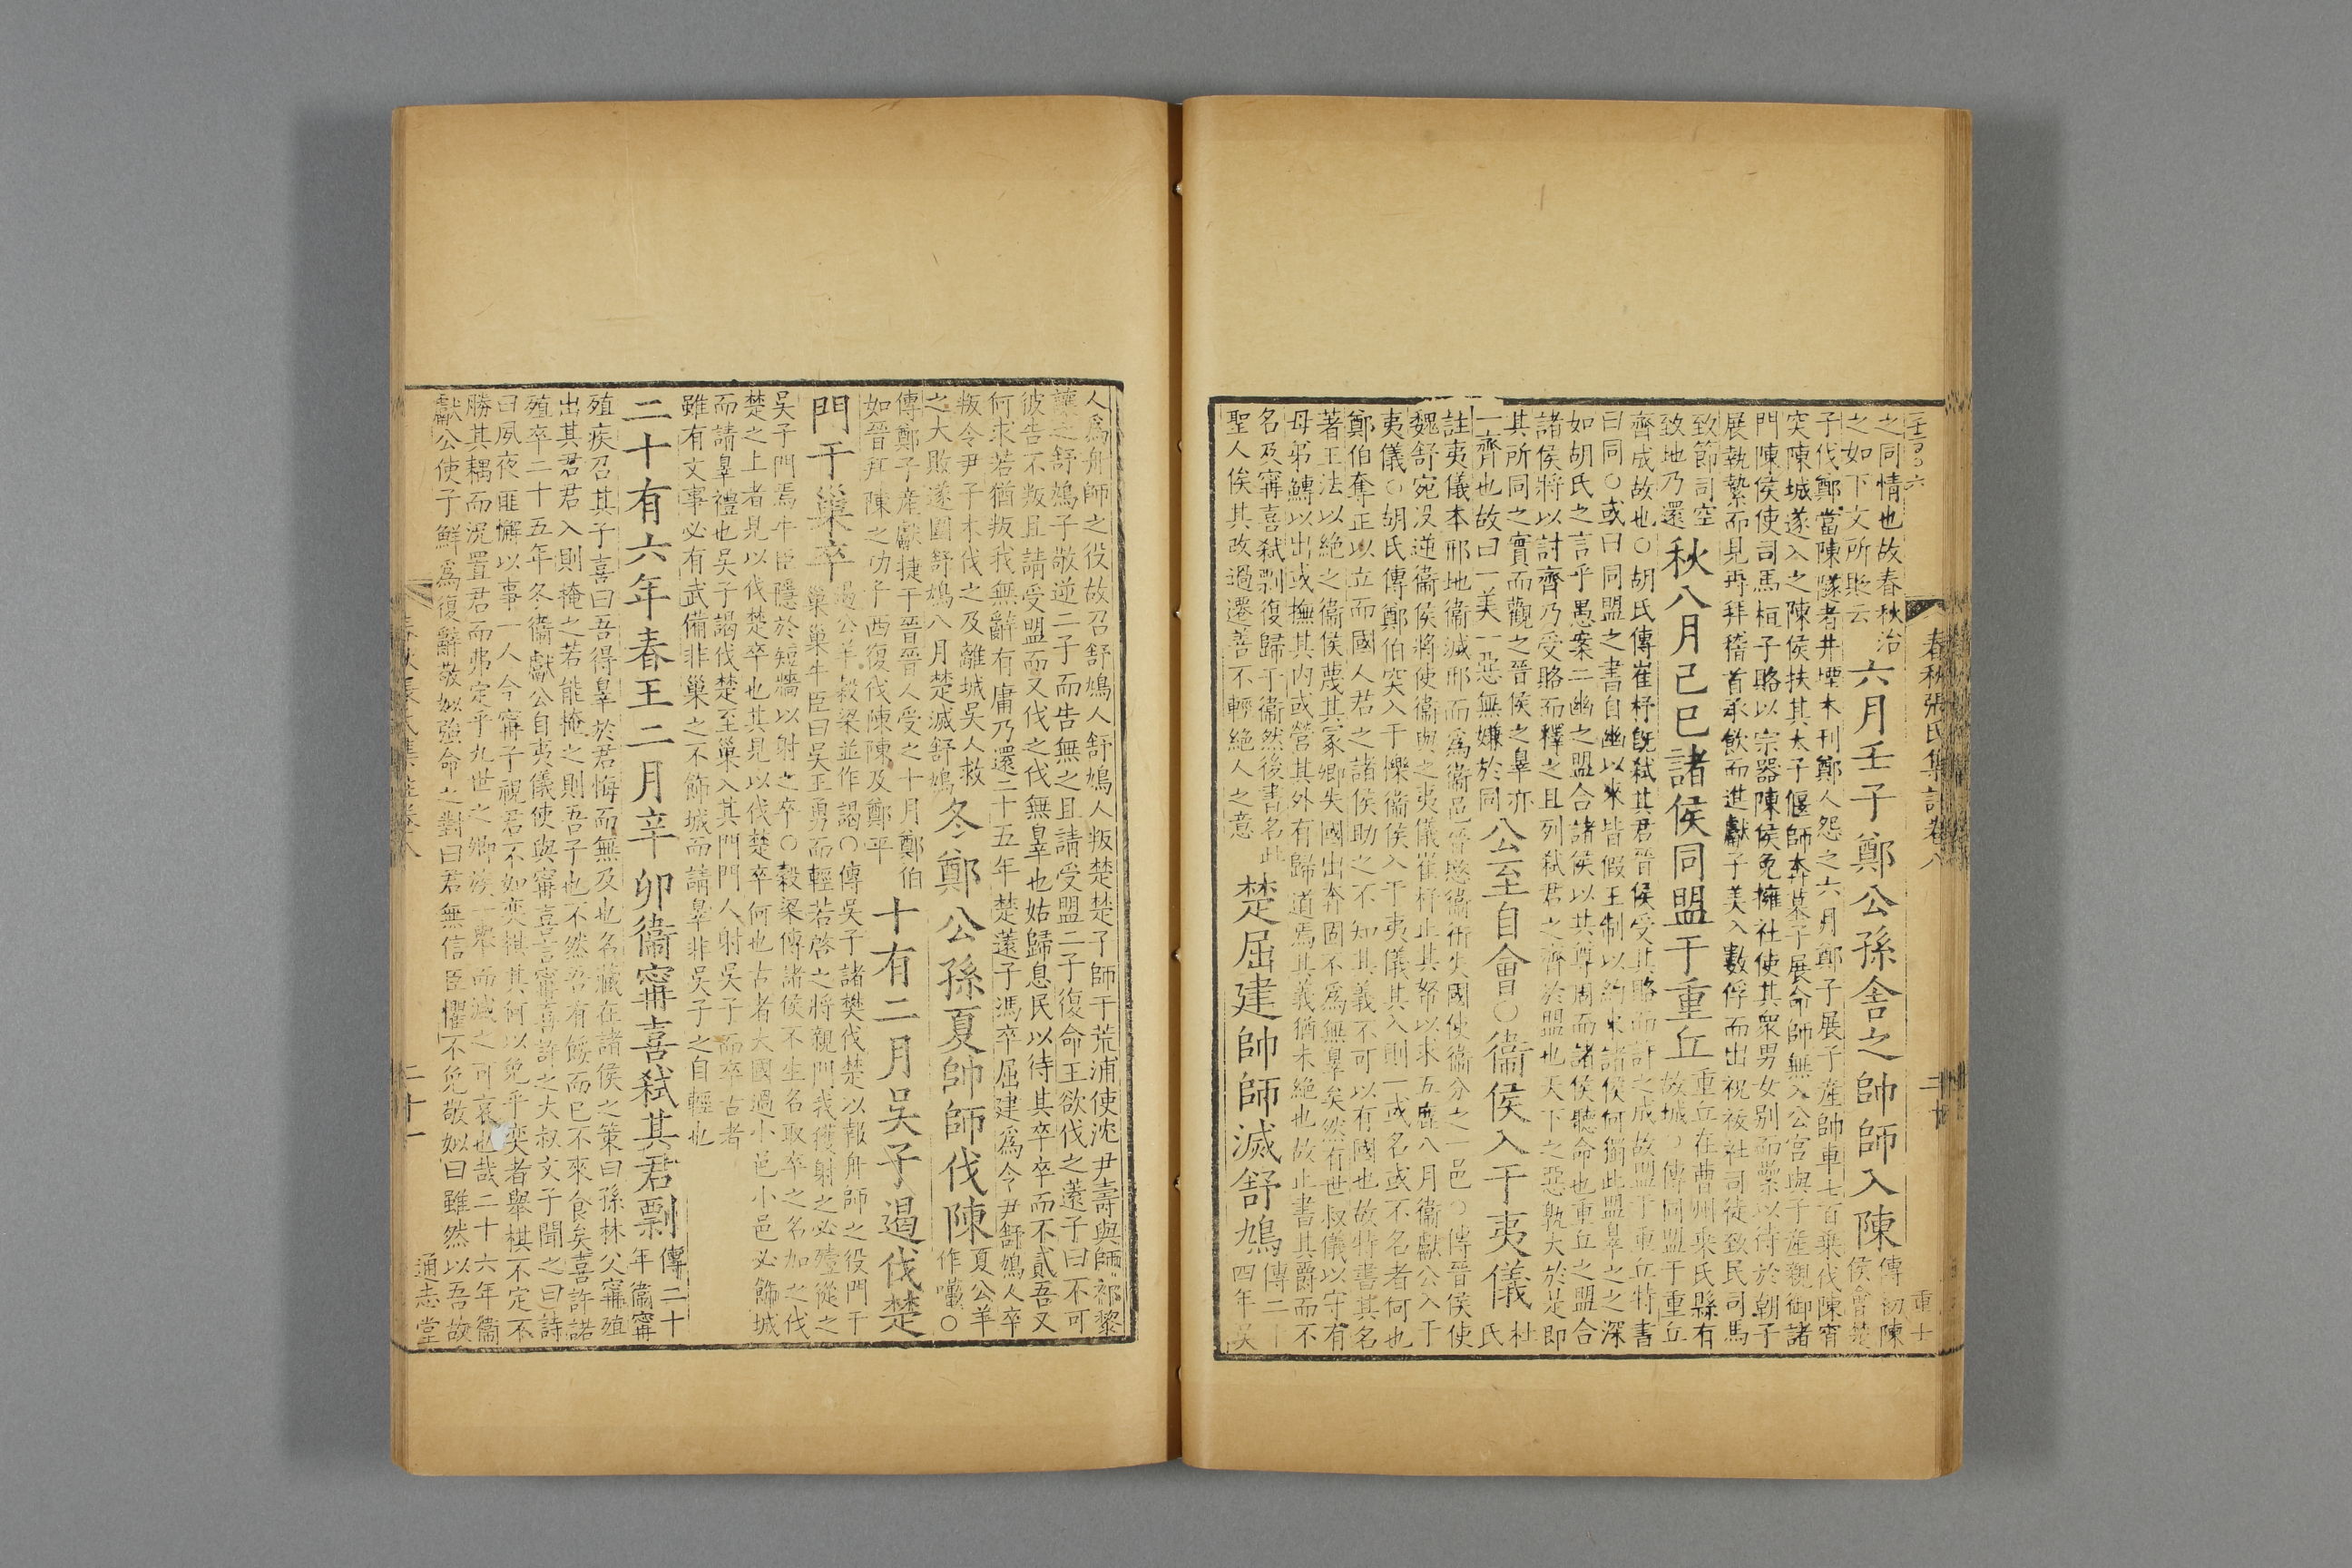 春秋張氏集註卷八
二十
之同情也故春秋治
之如下文所貶云
六月壬子鄭公孫舍之帥師入陳
傳初陳
侯會楚
子伐鄭當陳隧者井堙木刊鄭人怨之六月鄭子展子產帥車七百乘伐陳宵
突陳城遂入之陳侯扶其太子偃師奔墓子展命師無入公宮與子產親御諸
門陳侯使司馬桓子賂以宗器陳侯免擁社使其衆男女别而纍以待於朝子
展執縶而見再拜稽首承飲而進獻子美入數俘而出祝祓社司徒致民司馬
致節司空
致地乃還
秋八月己巳諸侯同盟于重丘
重丘在曹州乘氏縣有
故城○傳同盟于重丘
齊成故也○胡氏傳崔杼旣弑其君晉侯受其賂而許之成故盟于重丘特書
曰同○或曰同盟之書自幽以來皆假王制以約束諸侯何獨此盟辠之之深
如胡氏之言乎愚案二幽之盟合諸侯以共尊周而諸侯聽命也重丘之盟合
諸侯將以討齊乃受賂而釋之且列弑君之齊於盟也天下之惡孰大於是即
其所同之實而觀之晉侯之辠亦
一齊也故曰一美一惡無嫌於同
公至自會○衞侯入于夷儀
杜
氏
註夷儀本邢地衞滅邢而爲衞邑晉愍衞衎失國使衞分之一邑○傳晉侯使
魏舒宛没逆衞侯將使衞與之夷儀崔杼止其帑以求五鹿八月衞獻公入于
夷儀○胡氏傳鄭伯突入于櫟衞侯入于夷儀其入則一或名或不名者何也
鄭伯奪正以立而國人君之諸侯助之不知其義不可以有國也故特書其名
著王法以絶之衞侯蔑其冢卿失國出奔固不爲無辠矣然有世叔儀以守有
母弟鱄以出或撫其内或營其外有歸道焉其義猶未絶也故止書其爵而不
名及甯喜弑剽復歸于衞然後書名此
聖人俟其改過遷善不輕絶人之意
楚屈建帥師滅舒鳩
傳二十
四年吴
人爲舟師之役故召舒鳩人舒鳩人叛楚楚子師于荒浦使沈尹壽與師祁黎
讓之舒鳩子敬逆二子而告無之且請受盟二子復命王欲伐之薳子曰不可
彼告不叛且請受盟而又伐之伐無辠也姑歸息民以待其卒卒而不貳吾又
何求若猶叛我無辭有庸乃還二十五年楚薳子馮卒屈建爲令尹舒鳩人卒
叛令尹子木伐之及離城吳人救
之大敗遂圍舒鳩八月楚滅舒鳩
冬鄭公孫夏帥師伐陳
夏公羊
作囆○
傳鄭子產獻捷于晉晉人受之十月鄭伯
如晉拜陳之功子西復伐陳陳及鄭平
十有二月吳子遏伐楚
門于巢卒
遏公羊穀梁並作謁○傳吳子諸樊伐楚以報舟師之役門于
巢巢牛臣曰吳王勇而輕若啓之將親門我獲射之必殪從之
吳子門焉牛臣隱於短牆以射之卒○穀梁傳諸侯不生名取卒之名加之伐
楚之上者見以伐楚卒也其見以伐楚卒何也古者大國過小邑小邑必飾城
而請辠禮也吳子謁伐楚至巢入其門門人射吳子而卒古者
雖有文事必有武備非巢之不飾城而請辠非吳子之自輕也
二十有六年春王二月辛卯衞甯喜弑其君剽
傳二十
年衞甯
殖疾召其子喜曰吾得辠於君悔而無及也名藏在諸侯之策曰孫林父甯殖
出其君君入則掩之若能掩之則吾子也不然吾有餒而已不來食矣喜許諾
殖卒二十五年冬衞獻公自夷儀使與甯喜言甯喜許之大叔文子聞之曰詩
曰夙夜匪懈以事一人今甯子視君不如奕棋其何以免乎奕者舉棋不定不
勝其耦而況置君而弗定乎九世之卿族一舉而滅之可哀也哉二十六年衞
獻公使子鮮爲復辭敬姒強命之對曰君無信臣懼不免敬姒曰雖然以吾故
二十一
通志堂